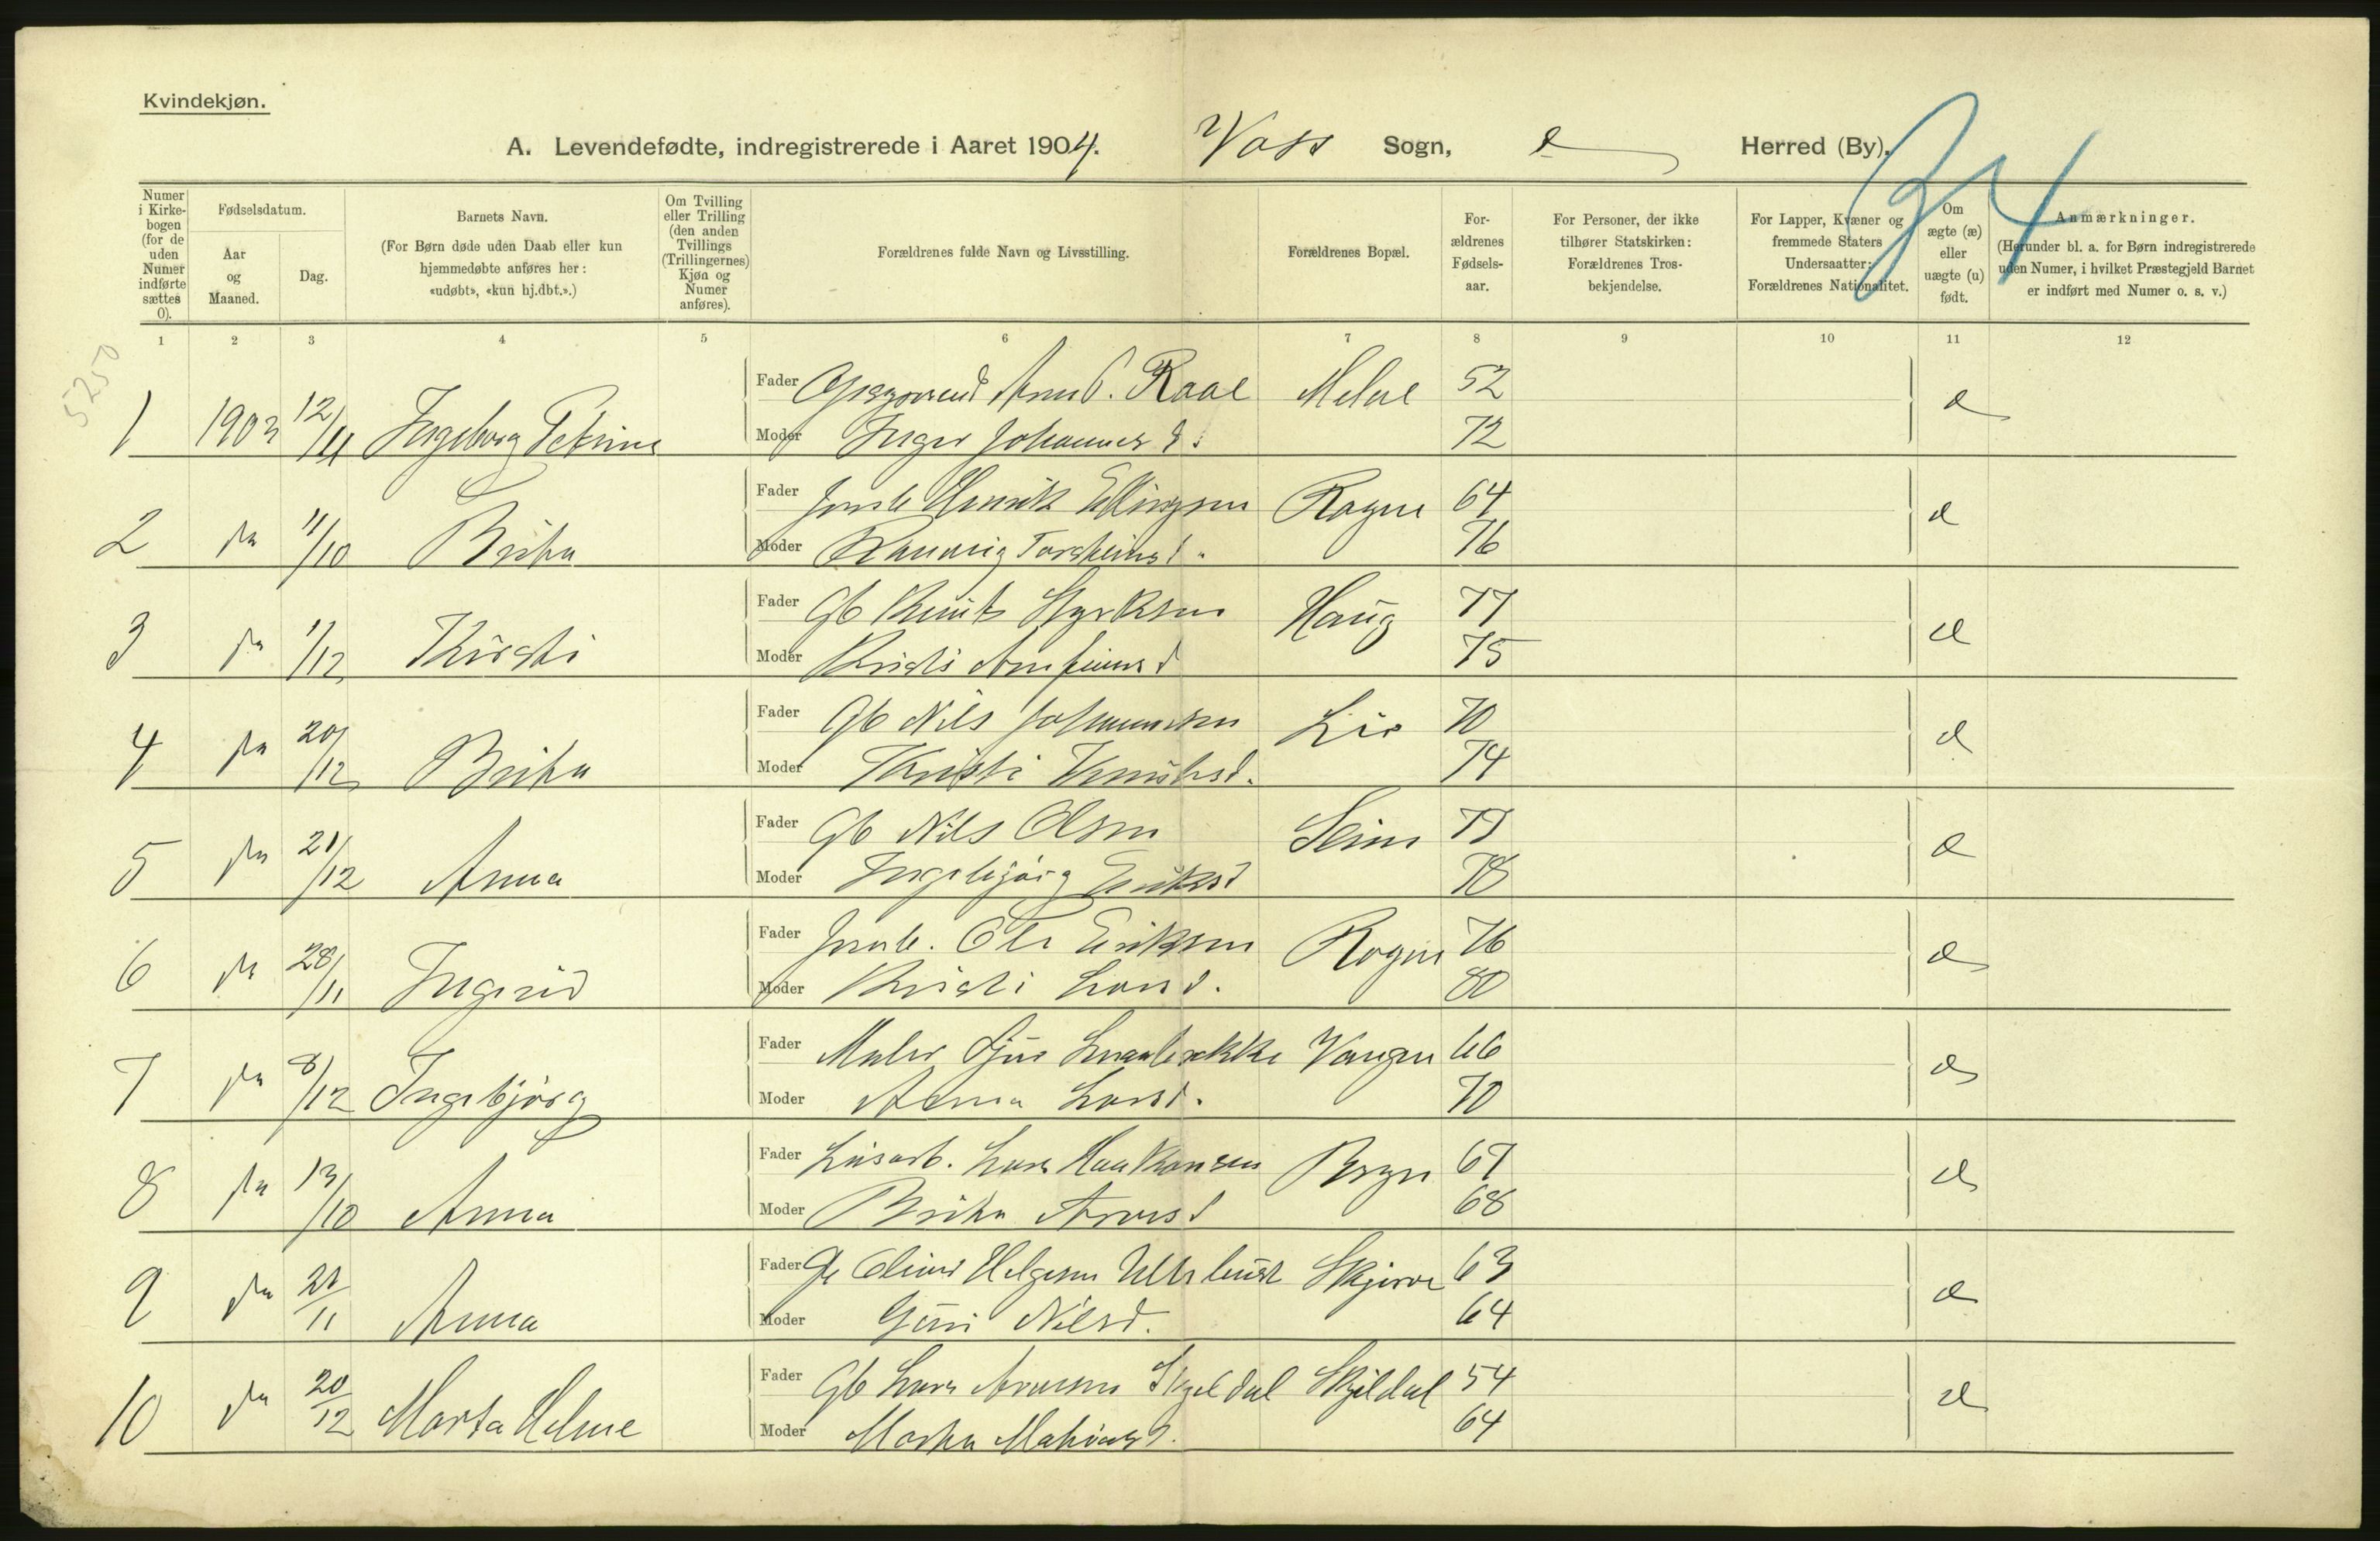 Kvindekjøn.
A. Levendefødte, indregistrerede i Aaret 1904. Voss Sogn, Herred (By).
34
Numer i Kirkebogen (for de uden Numer indførte sættes 0).
Fødselsdatum.
Aar og Maaned.
Dag.
Barnets Navn.
(For Børn døde uden Daab eller kun hjemmedøbte anføres her: «udøbt», «kun hj.dbt.».)
Om Tvilling eller Trilling (den anden Tvillings (Trillingernes) Kjøn og Numer anføres).
Forældrenes fulde Navn og Livsstilling.
Forældrenes Bopæl.
Forældrenes Fødselsaar.
For Personer, der ikke tilhører Statskirken: Forældrenes Trosbekjendelse.
For Lapper, Kvæner og fremmede Staters Undersaatter: Forældrenes Nationalitet.
Om ægte (æ) eller uægte (u) født.
Anmærkninger.
(Herunder bl. a. for Børn indregistrerede uden Numer, i hvilket Præstegjeld Barnet er indført med Numer o. s. v.)
1 2 3 4 5 6 7 8 9 10 11 12
5250
1 1903 12/11 Ingeborg Petrine Fader Raae 52 æ
Moder Inger Johannesd. 72
2 da 11/10 Brita Fader Henrik Ellingsen Rogne 64 æ
Moder Torsteinsd. 76
3 da 1/12 Kirsti Fader Gb Knut Styrksen Haug 77 æ
Moder Kristi Arnfinnsd 75
4 da 20/12 Brita Fader Gb Nils Johannesen Lie 70 æ
Moder Kristi Knutsd. 74
5 da 21/12 Anna Fader Gb Nils Olsen Seim 77 æ
Moder Ingebjørg Eriksd 78
6 da 28/11 Ingerid Fader Ole Eriksen Rogne 76 æ
Moder Kristi Larsd. 80
7 da 8/12 Ingebjørg Fader Maler Sjur Vangen 66 æ
Moder Anna Larsd. 70
8 da 13/10 Anna Fader Lars Haakonsen Bryn 67 æ
Moder Brita Arnesd 68
9 da 11 Anna Fader Helgesen Skjerve 63 æ
Moder Guri Nilsd. 64
10 da 20/12 Marta Helene Fader Gb Lars Arnesen Skjeldal Skjeldal 54 æ
Moder Marta Matiasd. 64